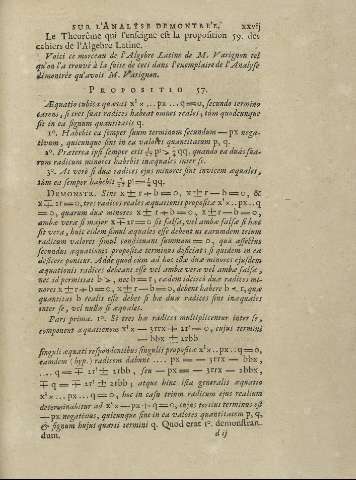 SUR L'ANALYSE DEMONTRÉE. xxvij
Le Theorême qui l'enseigne est la proposition 59. des
cahiers de l'Algebre Latine.
Voici ce morceau de l'Algebre Latine de M. Varignon tel
qu'on l'a trouvé à la suite de ceci dans l'exemplaire de l'Analyse
démontrée qu'avoit M. Varignon.
PROPOSITIO 57.
Æquatio cubica quævis x³ x .. px .. q = 0, secundo termino
carens, si tres suas radices habeat omnes reales, tum quodcunque
sit in ea signum quantitatis q.
1°. Habebit ea semper suum terminum secundum — px nega-
tivum, quicunque sint in ea valores quantitatum p, q.
2°. Præterea ipsi semper erit 1/27 p³ > 1/4 qq, quando eæ duæ sua-
rum radicum minores habebit inæquales inter se.
3°. At verò si duæ minores ejus radices sint invicem æquales,
tum ea semper habebit 1/27 p³ = 1/4 qq.
DEMONSTR. Sint x ± r + b = 0, x ± r — b = 0, &
x ∓ 2r = 0, tres radices reales æquationis propositæ x³ .. px .. q
= 0, quarum duæ minores x ± r + b = 0, x ± r — b = 0,
ambæ veræ si major x + 2r = 0 sit falsa, vel ambæ falsæ si hæc
sit vera, huic eidem simul æquales esse debent ut earumdem trium
radicum valores simul constituant summam = 0, quâ absens
secundus æquationis propositæ terminus deficiat; si quidem in ea
deficere ponitur. Adde quod cum ad hoc istæ duæ minores ejusdem
æquationis radices debeant esse vel ambæ veræ vel ambæ falsæ,
nec id permittat b >, nec b = r, eædem idcirco duæ radices mi-
nores x ± r + b = 0, x ± r — b = 0, debent habere b < r, quæ
quantitas b realis esse debet si hæ duæ radices sint inæquales
inter se, vel nulla si æquales.
Pars prima. 1°. Si tres hæ radices multiplicentur inter se,
component æquationem x³ x — 3rrx + 2r³ = 0, cujus termini
— bbx ± 2rbb
singuli æquati respondentibus singulis propositæ x³ x .. px .. q = 0,
eamdem (hyp.) radicem dabunt .... px = — 3rrx — bbx,
.... q = ∓ 2r³ ± 2rbb, seu — px = — 3rrx — bbx,
∓ q = ∓ 2r³ ± 2rbb; atque hinc ista generalis æquatio
x³ x .. px .. q = 0, hoc in casu trium radicum ejus realium
determinabitur ad x³ x — px + q = 0, cujus tertius terminus est
— px negativus, quicunque sint in ea valores quantitatum p, q,
& signum hujus quarti termini q. Quod erat 1°. demonstran-
dum. d ij